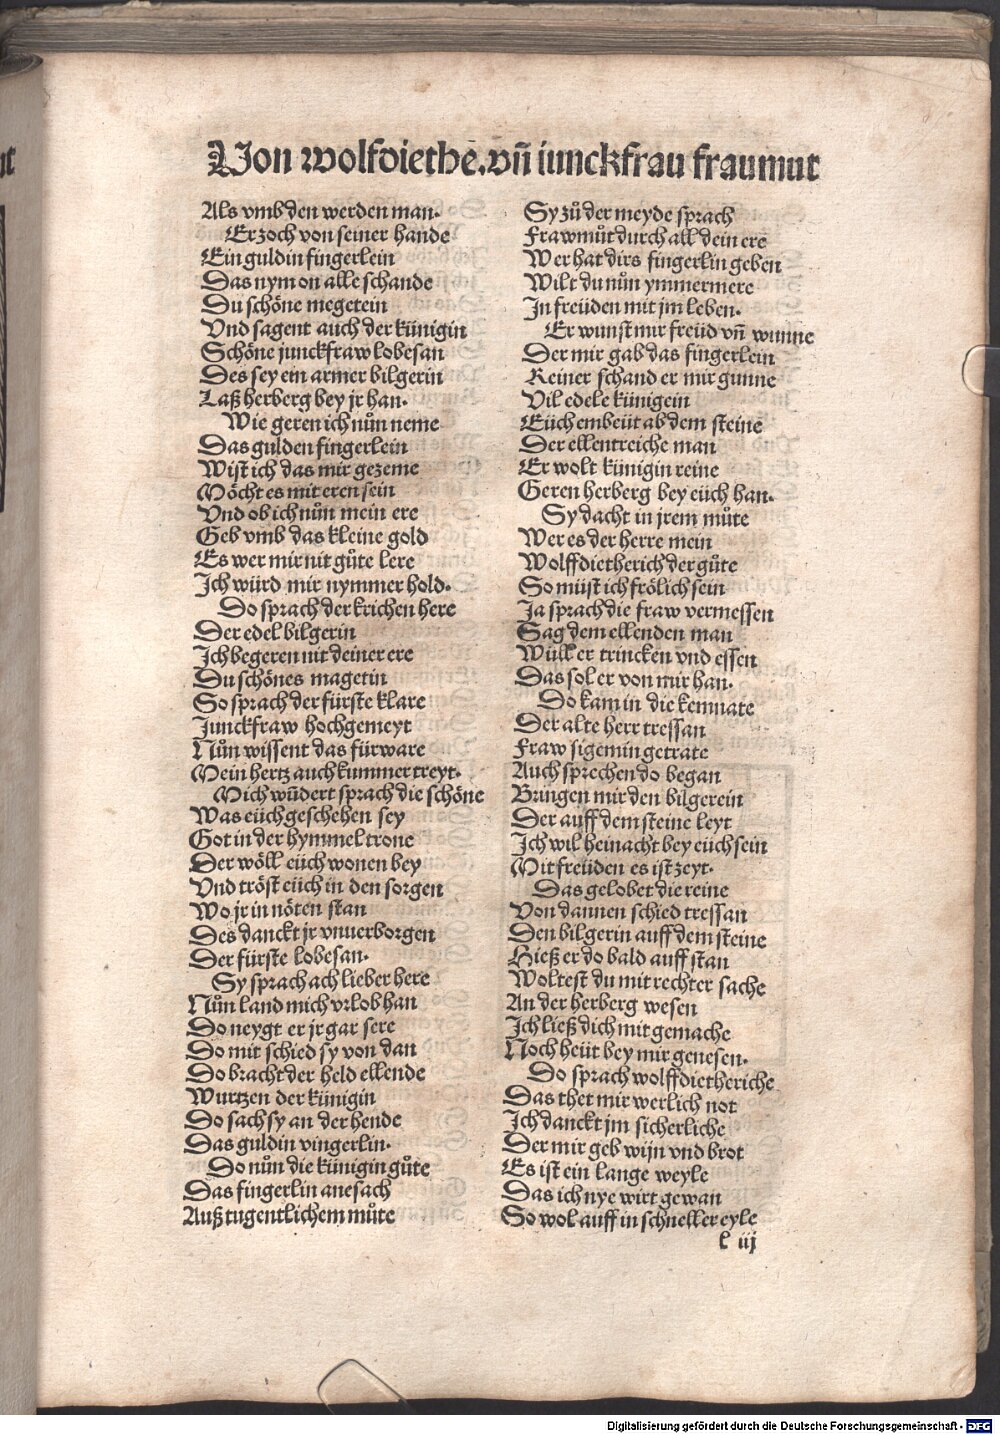 Von wolfdiethe. vñ iunckfrau fraumut
Als vmb den werden man.
Er zoch von seiner hande
Ein guldin fingerlein
Das nym on alle schande
Du schöne megetein
Vnd sagent auch der künigin
Schöne junckfraw lobesan
Des sey ein armer bilgerin
Laß herberg bey jr han.
Wie geren ich nůn neme
Das gulden fingerlein
Wist ich das mir gezeme
Möcht es mit eren sein
Vnd ob ich nůn mein ere
Geb vmb das kleine gold
Es wer mir nit gůte lere
Ich würd mir nymmer hold.
Do sprach der krichen here
Der edel bilgerin
Ich begeren nit deiner ere
Du schönes magetin
So sprach der fürste klare
Junckfraw hochgemeyt
Nůn wissent das fürware
Mein hertz auch kummer treyt.
Mich wūdert sprach die schöne
Was eüch geschehen sey
Got in der hymmel trone
Der wöll eüch wonen bey
Vnd tröst eüch in den sorgen
Wo jr in nöten stan
Des danckt jr vnuerborgen
Der fürste lobesan.
Sy sprach ach lieber here
Nůn land mich vrlob han
Do neygt er jr gar sere
Do mit schied sy von dan
Do bracht der held ellende
Wurtzen der künigin
Do sach sy an der hende
Das guldin vingerlin.
Do nůn die künigin gůte
Das fingerlin anesach
Auß tugentlichem můte
Sy zů der meyde sprach
Frawmůt durch all dein ere
Wer hat dirs fingerlin geben
Wilt du nům ymmermere
In freüden mit jm leben.
Er wunst mir freüd vñ wunne
Der mir gab das fingerlein
Keiner schand er mir gunne
Vil edele künigein
Eüch embeüt ab dem steine
Der ellentreiche man
Er wolt künigin reine
Geren herberg bey eüch han.
Sy dacht in jrem můte
Wer es der herre mein
Wolffdietherich der gůte
So müst ich frölich sein
Ja sprach die fraw vermessen
Sag dem ellenden man
Wüll er trincken vnd essen
Das sol er von mir han.
Do kam in die kemnate
Der alte herr tressan
Fraw sigemin getrate
Auch sprechen do began
Bringen mir den bilgerein
Der auff dem steine leyt
Ich wil heinacht bey eüch sein
Mit freüden es ist zeyt.
Das gelobet die reine
Von dannen schied tressan
Den bilgerin auff dem steine
Hieß er do bald auff stan
Woltest du mit rechter sache
An der herberg wesen
Ich ließ dich mit gemache
Noch heüt bey mir genesen.
Do sprach wolffdietheriche
Das thet mir werlich not
Ich danckt jm sicherliche
Der mir geb wijn vnd brot
Es ist ein lange weyle
Das ich nye wirt gewan
So wol auff in schneller eyle
l iij
Digitalisierung gefördert durch die Deutsche Forschungsgemeinschaft - DFG